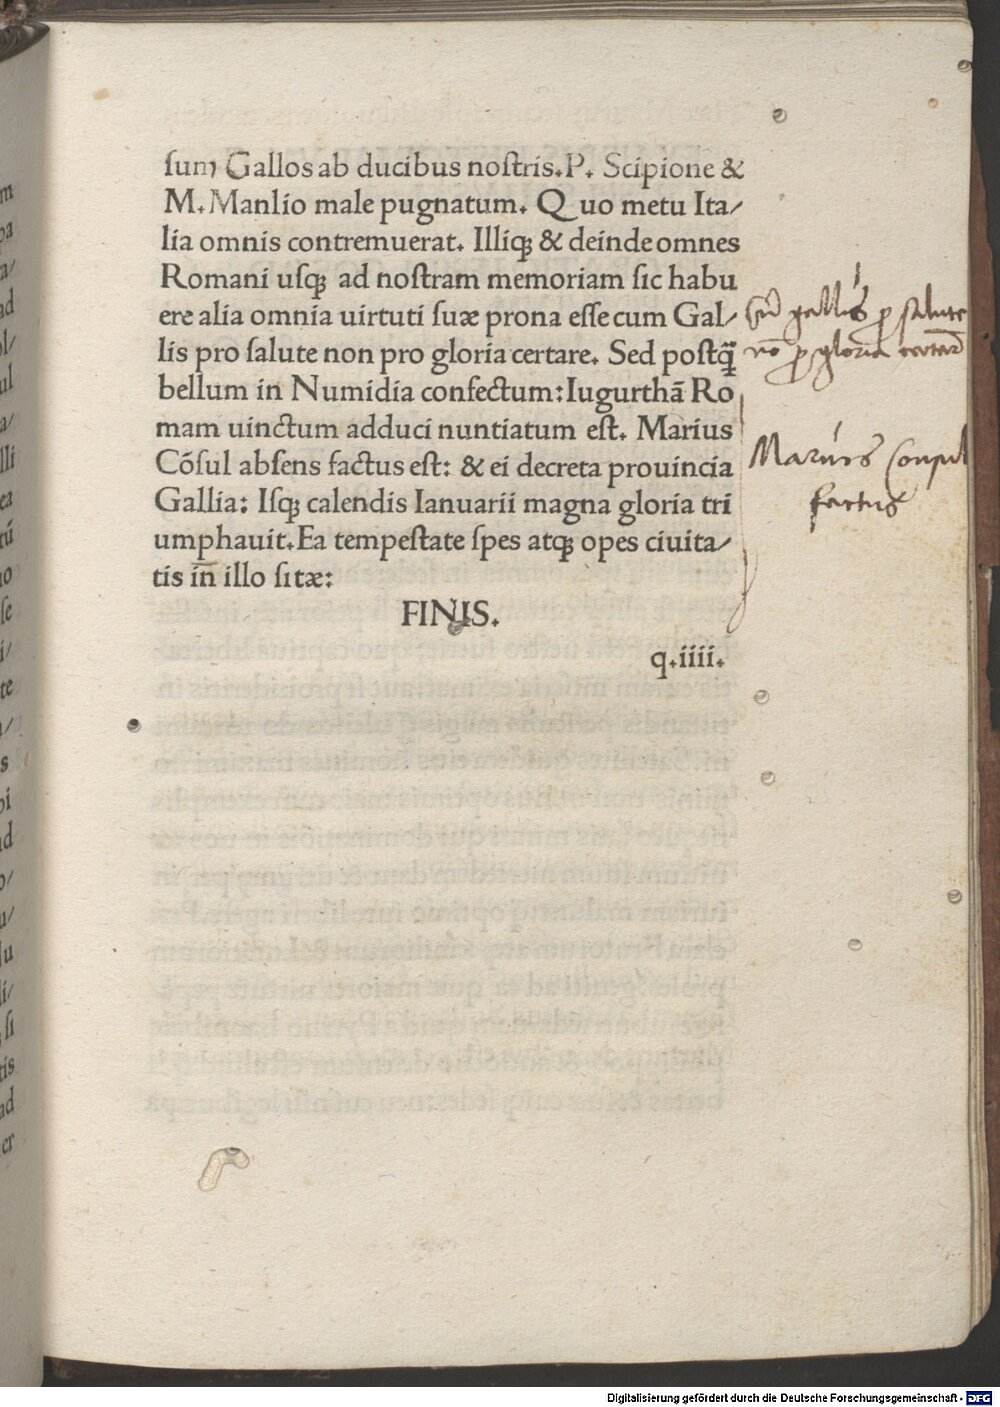 ſum Gallos ab ducibus noſtris. P. Scipione &
M. Manlio male pugnatum. Quo metu Ita/
lia omnis contremuerat. Illiqꝫ & deinde omnes
Romani uſqꝫ ad noſtram memoriam ſic habu
ere alia omnia uirtuti ſuæ prona eſſe cum Gal/
lis pro ſalute non pro gloria certare. Sed poſtq̄
bellum in Numidia confectum: Iugurthā Ro
mam uinctum adduci nuntiatum eſt. Marius
Cōſul abſens factus eſt: & ei decreta prouincia
Gallia: Iſqꝫ calendis Ianuarii magna gloria tri
umphauit. Ea tempeſtate ſpes atqꝫ opes ciuita/
tis in̄ illo ſitæ:
FINIS.
q.iiii.
gallis ꝓ ſalute
nō ꝓ gloria
Marius Conſul
factus
Digitalisierung gefördert durch die Deutsche Forschungsgemeinschaft - DFG